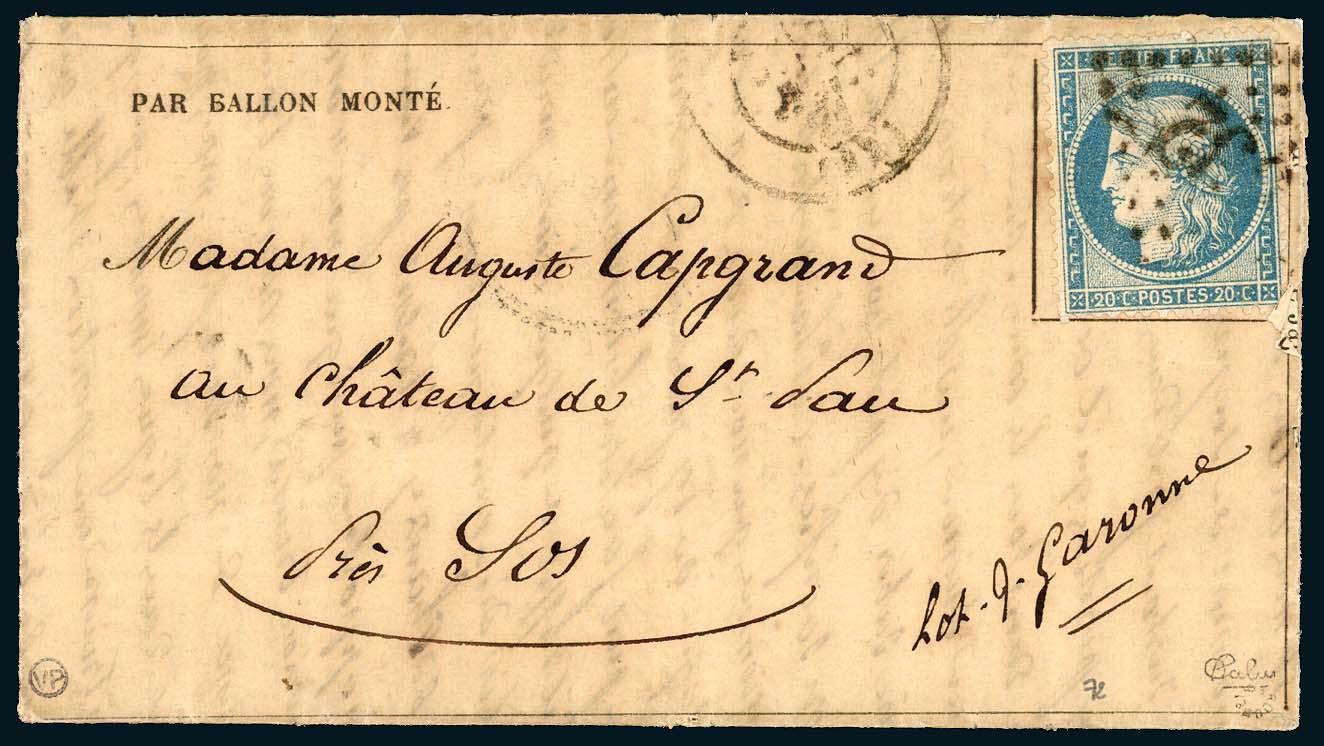 PAR BALLON MONTÉ.
FRANC
20·C·POSTES·20·C·
Madame Auguste Capgrand
au château de St. Pau
près Sos
Lot-&-Garonne
VP
72
Calves